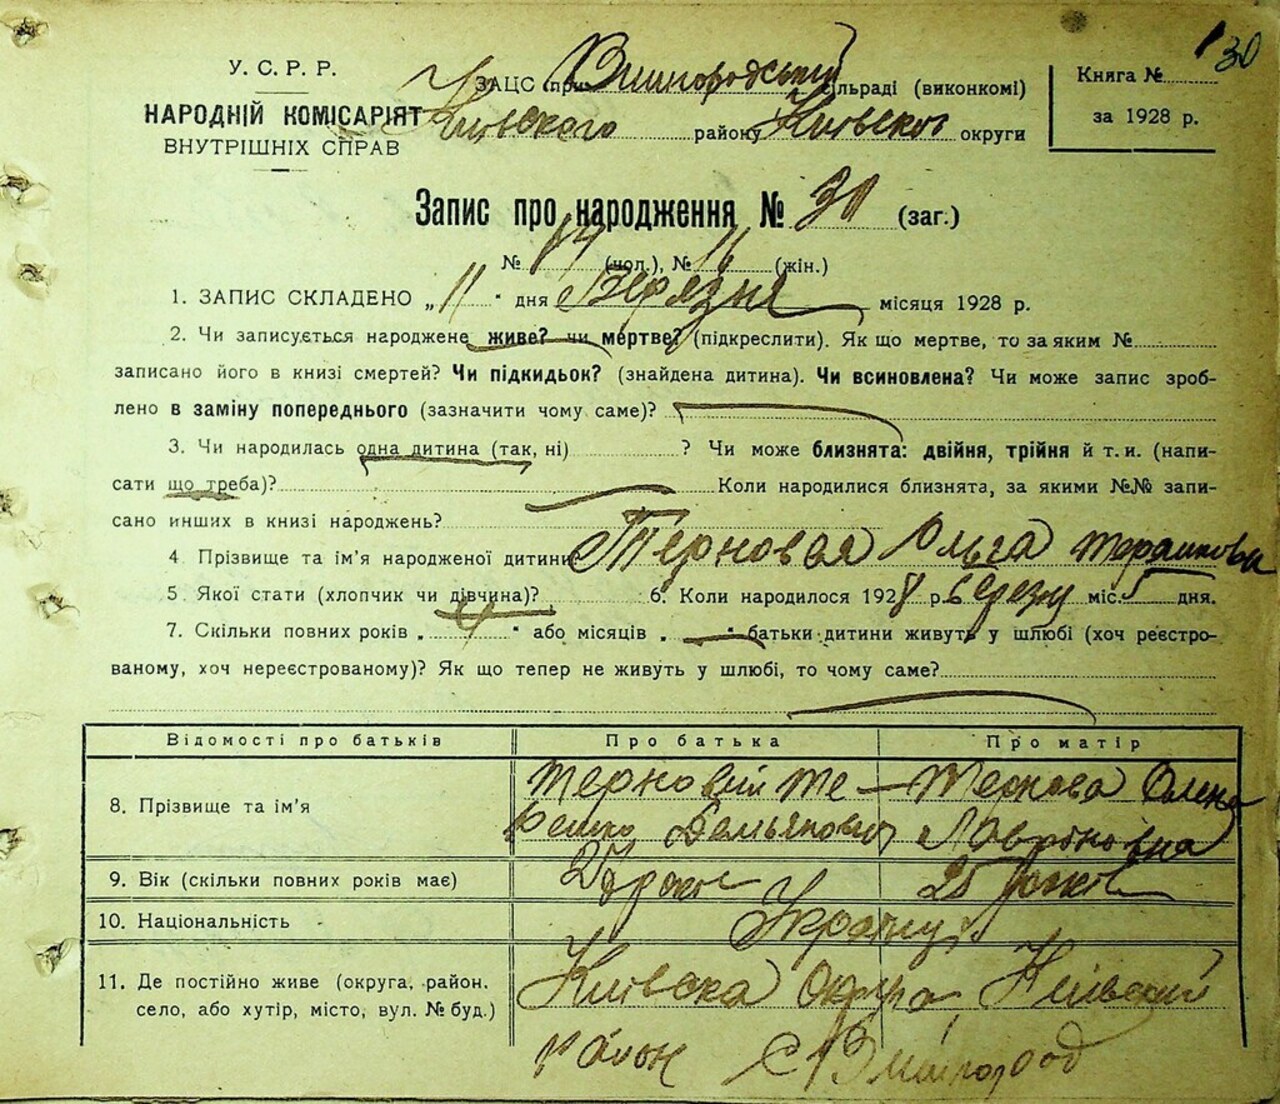 30
У. С. Р. Р.
НАРОДНІЙ КОМІСАРІЯТ
ВНУТРІШНІХ СПРАВ
ЗАЦС при Вишгородський сільраді (виконкомі)
Київского району Київского округи
Книга №
за 1928 р.
Запис про народження № 30 (заг.)
№ 14 (чол.), № 16 (жін.)
1. ЗАПИС СКЛАДЕНО „ 11 " дня Березня місяця 1928 р.
2. Чи записується народжене живе? чи мертве? (підкреслити). Як що мертве, то за яким №
записано його в книзі смертей? Чи підкидьок? (знайдена дитина). Чи всиновлена? Чи може запис зроб-
лено в заміну попереднього (зазначити чому саме)?
3. Чи народилась одна дитина (так, ні) ? Чи може близнята: двійня, трійня й т. и. (напи-
сати що треба)? Коли народилися близнята, за якими №№ запи-
сано инших в книзі народжень?
4. Прізвище та ім’я народженої дитини Терновая Ольга
5. Якої стати (хлопчик чи дівчина)? 6. Коли народилося 1928 р. березня міс. 5 дня.
7. Скільки повних років „ 4 " або місяців „ — " батьки дитини живуть у шлюбі (хоч реєстро-
ваному, хоч нереєстрованому)? Як що тепер не живуть у шлюбі, то чому саме?
Відомості про батьків Про батька Про матір
8. Прізвище та ім’я Терновий Тернова Олена
Демьянович
9. Вік (скільки повних років має) 25 років
10. Національність Українці
11. Де постійно живе (округа, район, село, або хутір, місто, вул. № буд.) Київска Округа Київский
район с. Вишгород